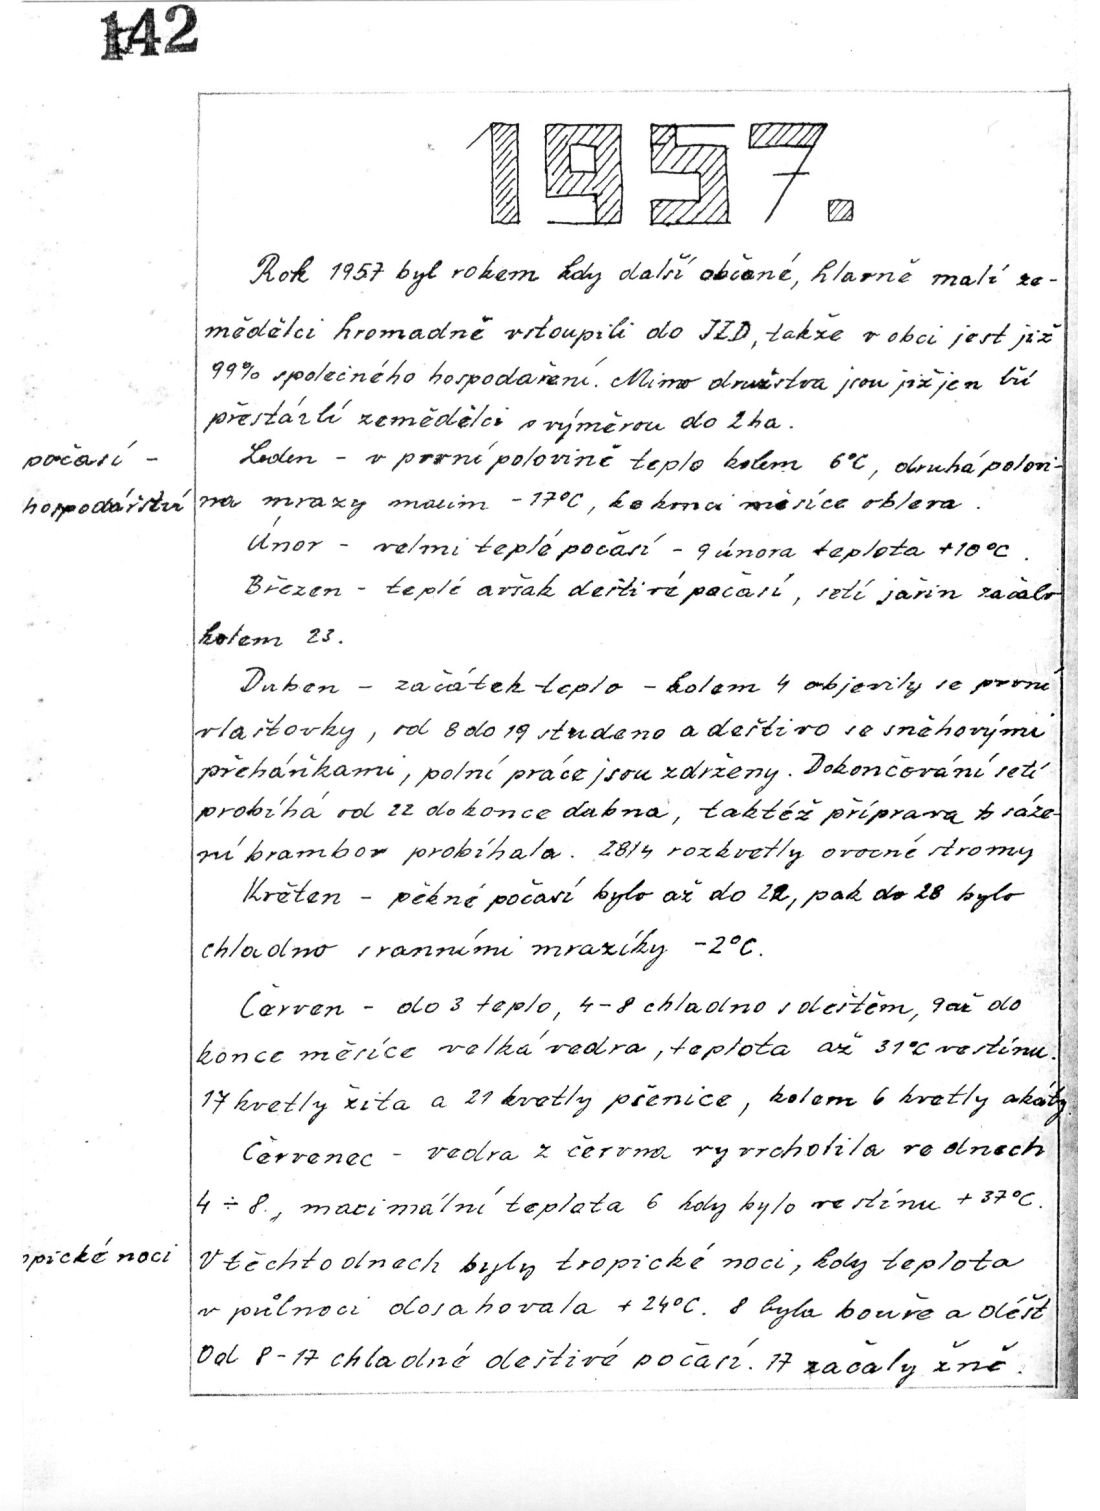 142
1957.
Rok 1957 byl rokem kdy další občané, hlavně malí ze-
mědělci hromadně vstoupili do JZD, takže v obci jest již
99% společného hospodaření. Mimo družstva jsou již jen tří
přestárlí zemědělci s výměrou do 2 ha.
počasí -
hospodářství
Leden - v první polovině teplo kolem 6°C, druhá polovi-
na mrazy maxim -17°C, ke konci měsíce obleva.
Únor - velmi teplé počasí - 9 února teplota +10°C.
Březen - teplé avšak deštivé počasí, setí jařin začalo
kolem 23.
Duben - začátek teplo - kolem 4 objevily se první
vlaštovky, od 8 do 19 studeno a deštivo se sněhovými
přeháňkami, polní práce jsou zdrženy. Dokončování setí
probíhá od 22 do konce dubna, taktéž příprava k sáze-
ní brambor probíhala. 28/4 rozkvetly ovocné stromy
Květen - pěkné počasí bylo až do 22, pak do 28 bylo
chladno s ranními mrazíky -2°C.
Červen - do 3 teplo, 4-8 chladno s deštěm, 9 až do
konce měsíce velká vedra, teplota až 31°C ve stínu.
17 kvetly žita a 21 kvetly pšenice, kolem 6 kvetly akáty
Červenec - vedra z června vyvrcholila ve dnech
4 ÷ 8., maximální teplota 6 kdy bylo ve stínu +37°C.
opické noci
V těchto dnech byly tropické noci, kdy teplota
v půlnoci dosahovala +24°C. 8 byla bouře a déšť
Od 8-17 chladné deštivé počasí. 17 začaly žně.